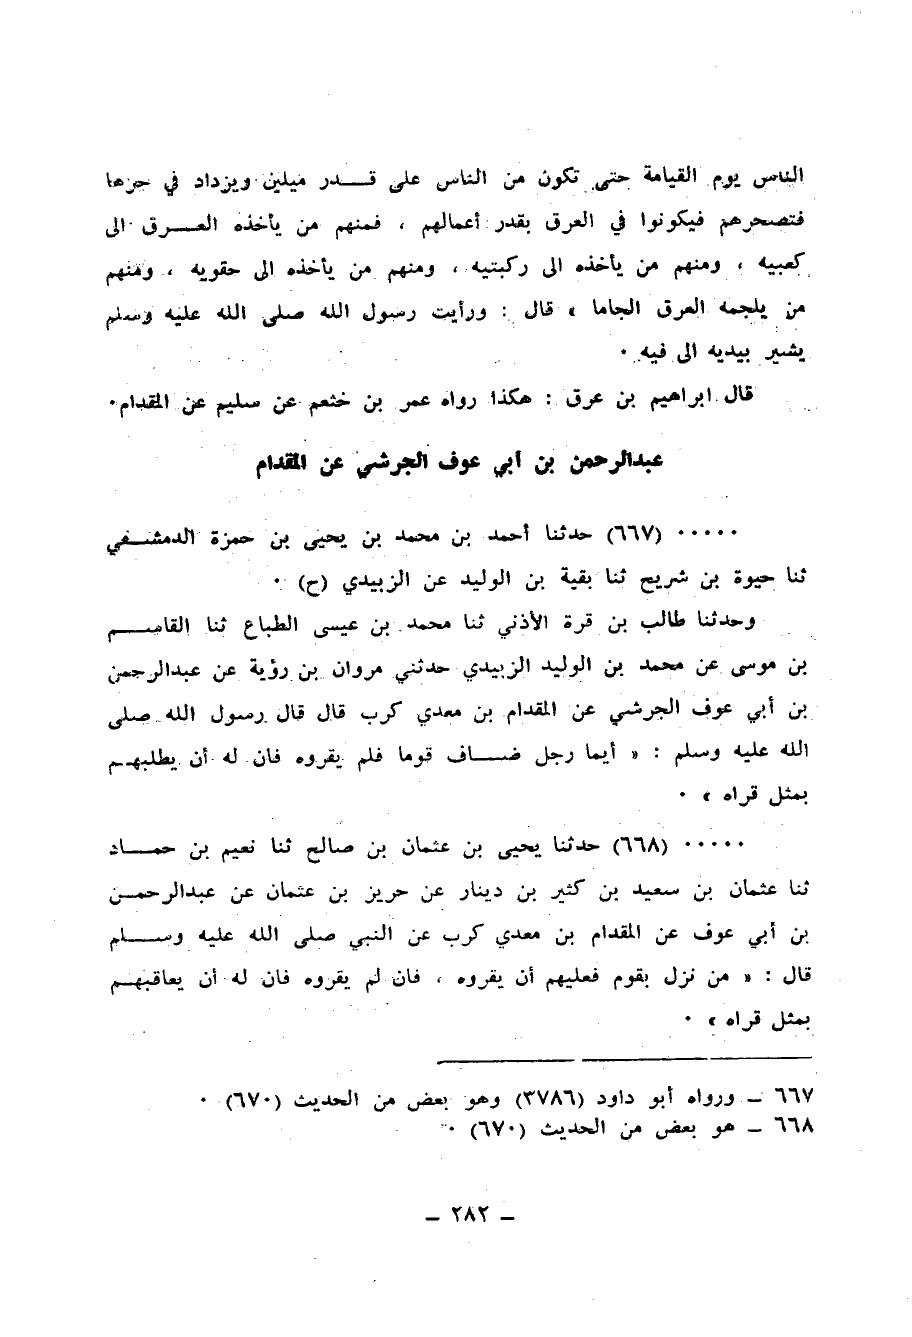 الناس يوم القيامة حتى تكون من الناس على قـــدر ميلين ويزداد في حرها
فتصحرهم فيكونوا في العرق بقدر أعمالهم ، فمنهم من يأخذه العـــرق الى
كعبيه ، ومنهم من يأخذه الى ركبتيه ، ومنهم من يأخذه الى حقويه ، ومنهم
من يلجمه العرق الجاما » قال : ورأيت رسول الله صلى الله عليه وسلم
يشير بيديه الى فيه ٠
قال ابراهيم بن عرق : هكذا رواه عمر بن خثعم عن سليم عن المقدام ٠
عبدالرحمن بن أبي عوف الجرشي عن المقدام
٠٠٠٠٠ (٦٦٧) حدثنا أحمد بن محمد بن يحيى بن حمزة الدمشــقي
ثنا حيوة بن شريح ثنا بقية بن الوليد عن الزبيدي (ح) ٠
وحدثنا طالب بن قرة الأذني ثنا محمد بن عيسى الطباع ثنا القاســم
بن موسى عن محمد بن الوليد الزبيدي حدثني مروان بن رؤبة عن عبدالرحمن
بن أبي عوف الجرشي عن المقدام بن معدي كرب قال قال رسول الله صلى
الله عليه وسلم : « أيما رجل ضـــاف قوما فلم يقروه فان له أن يطلبهــم
بمثل قراه » ٠
٠٠٠٠٠ (٦٦٨) حدثنا يحيى بن عثمان بن صالح ثنا نعيم بن حمـــاد
ثنا عثمان بن سعيد بن كثير بن دينار عن حريز بن عثمان عن عبدالرحمــن
بن أبي عوف عن المقدام بن معدي كرب عن النبي صلى الله عليه وســـلم
قال : « من نزل بقوم فعليهم أن يقروه ، فان لم يقروه فان له أن يعاقبهــم
بمثل قراه » ٠
٦٦٧ ــ ورواه أبو داود (٣٧٨٦) وهو بعض من الحديث (٦٧٠) ٠
٦٦٨ ــ هو بعض من الحديث (٦٧٠) ٠
ــ ٢٨٢ ــ